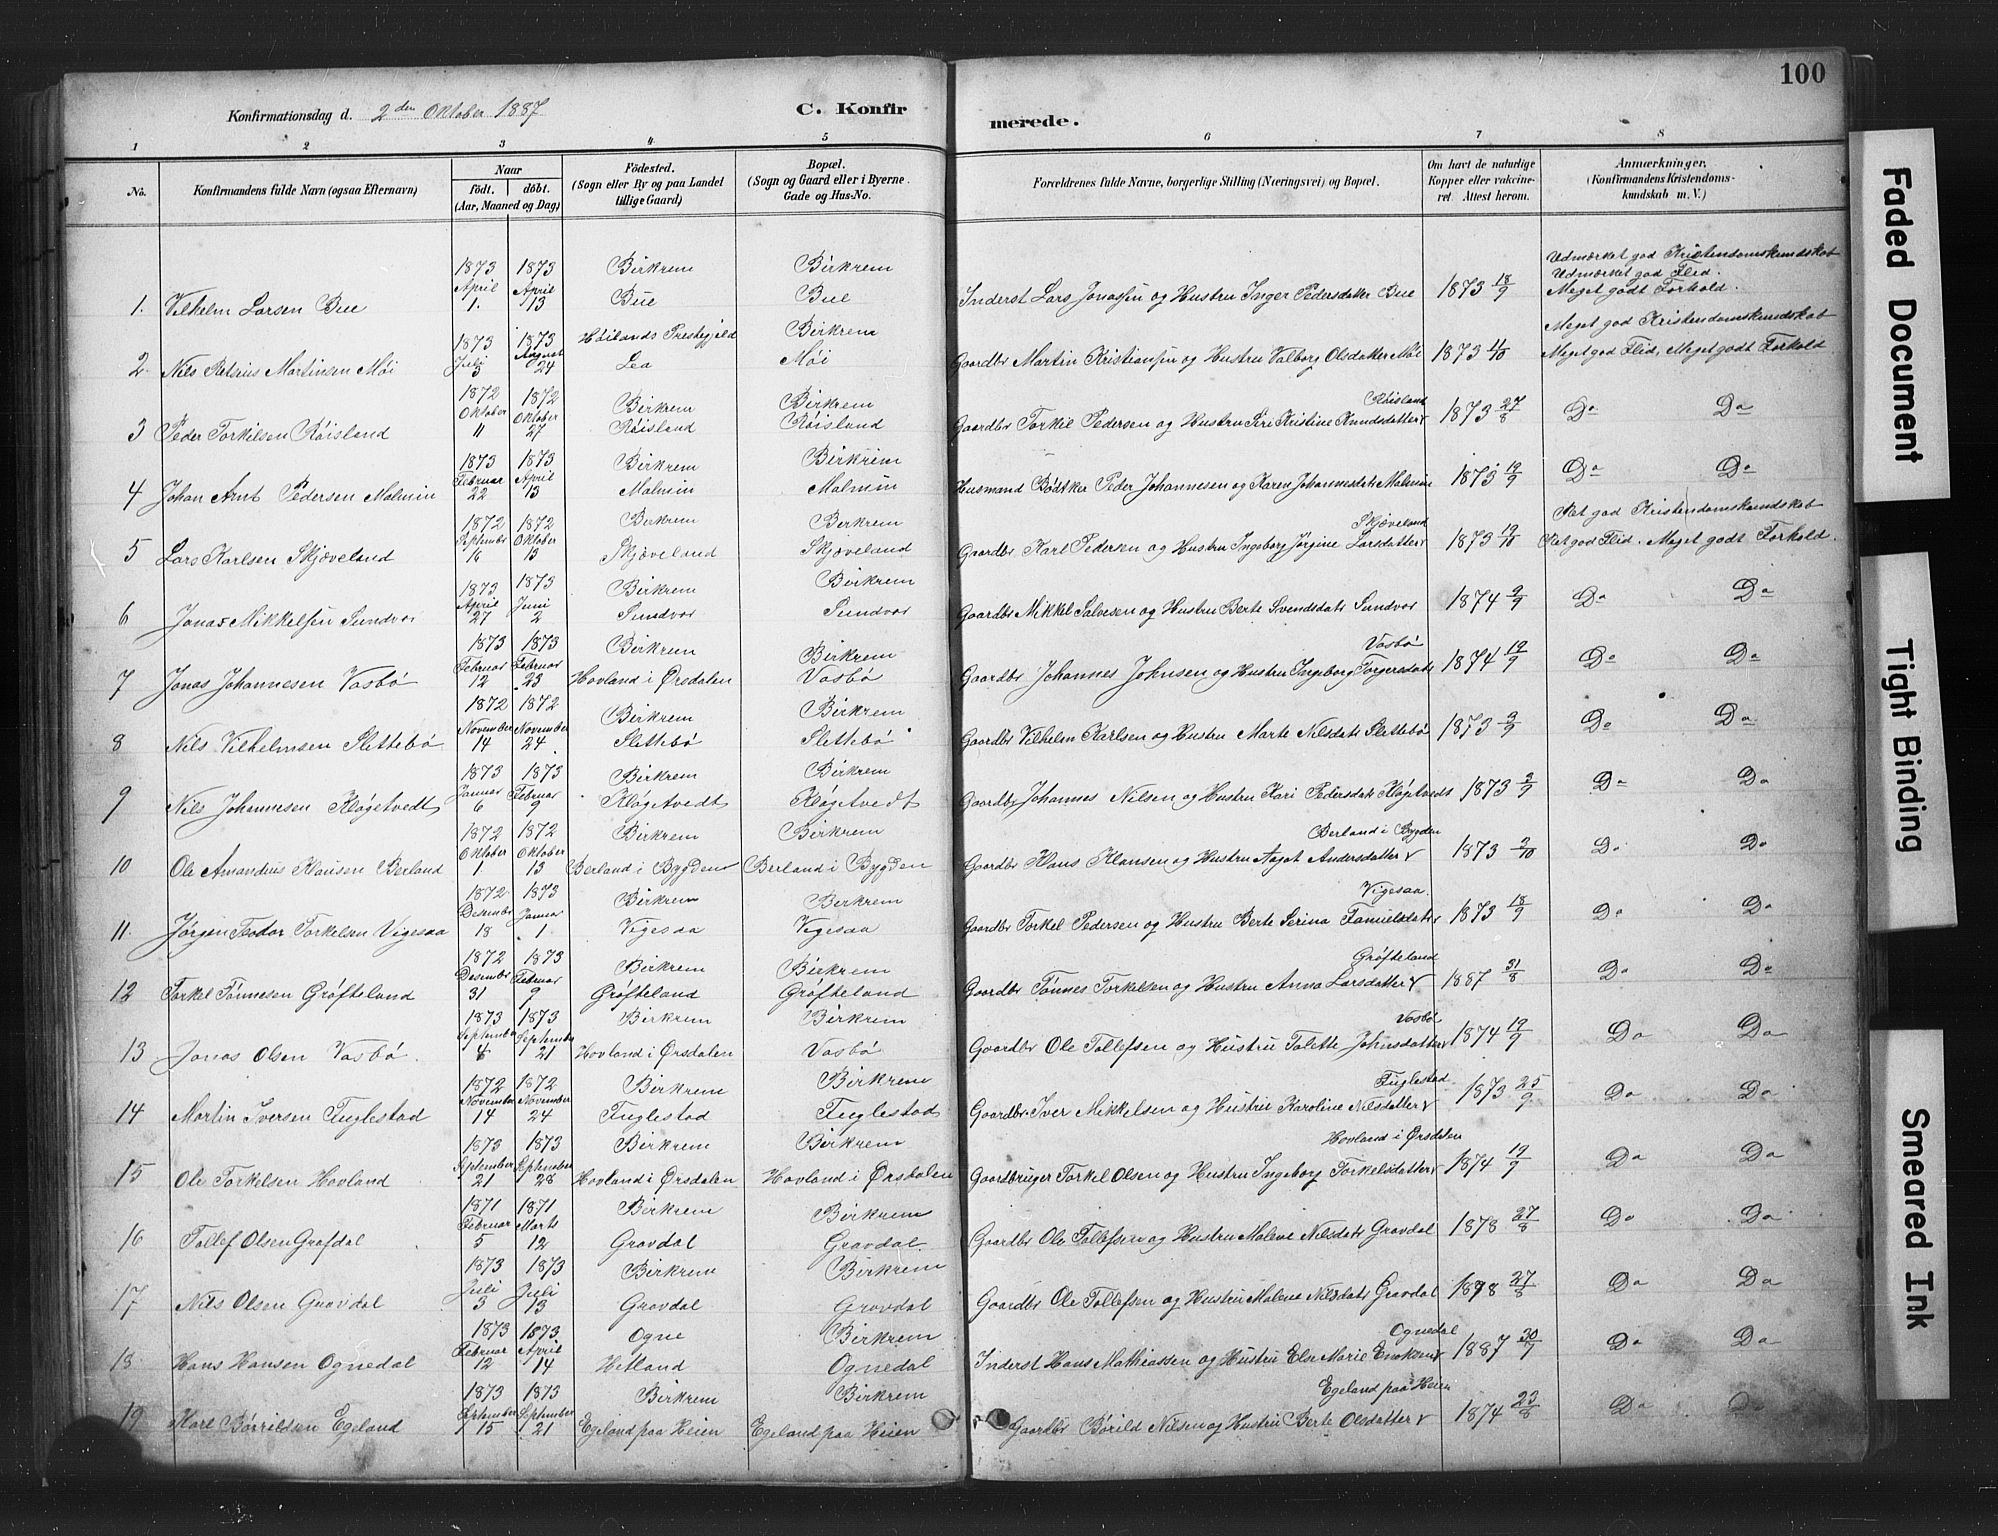 100
Konfirmationsdag d. 2den Oktober 1887
C. Konfir merede.
1 2 3 4 5 6 7 8
No. Konfirmandens fulde Navn (ogsaa Efternavn) Naar født. døbt. (Aar, Maaned og Dag) Fødested. (Sogn eller By og paa Landet tillige Gaard) Bopæl. (Sogn og Gaard eller i Byerne Gade og Hus-No. Forældrenes fulde Navne, borgerlige Stilling (Næringsvei) og Bopæl. Om havt de naturlige Kopper eller vakcineret. Attest herom. Anmærkninger, (Konfirmandens Kristendomskundskab m. V.)
1. Vilhelm Larsen Bue 1873 April 1. 1873 April 13 Birkrem Bue Birkrem Bue Inderst Lars Jonassen og Hustru Inger Pedersdatter Bue 1873 18/9 Udmærket god Kristendomskundskab Udmærket god Flid. Meget godt Forhold.
2. Nils Petrius Martinsen Møi 1873 Juli 3 1873 August 24 Høilands Prestegjeld Lea Birkrem Møi Gaardbr Martin Kristiansen og Hustru Valborg Olsdatter Møi 1873 11/10 Meget god Kristendomskundskab Meget god Flid, Meget godt Forhold
3 Peder Torkilsen Røisland 1872 Oktober 11 1872 Oktober 27 Birkrem Røisland Birkrem Røisland Gaardbr Torkil Pedersen og Hustru Siri Kristine Knudsdatter Røisland 1873 27/8 Do Do
4 Johan Arnt Pedersen Malmin 1873 Februar 22 1873 April 13 Birkrem Malmin Birkrem Malmin Husmand Bødtker Peder Johannesen og Karen Johannesdatr Malmin 1873 19/9 Do Do
5 Lars Karlsen Skjæveland 1872 September 16 1872 Oktober 13 Birkrem Skjæveland Birkrem Skjæveland Gaardbr Karl Pedersen og Hustru Ingeborg Jørgine Larsdatter Skjæveland 1873 19/10 Ret god Kristendomskundskab Ret god Flid. Meget godt Forhold.
6 Jonas Mikkelsen Sundvor 1873 April 27 1873 Juni 2 Birkrem Sundvor Birkrem Sundvor Gaardbr Mikkel Salvesen og Hustru Berte Svendsdatr Sundvor 1874 2/9 Do Do
7 Jonas Johannesen Vasbø 1873 Februar 12 1873 Februar 23 Birkrem Hovland i Ørsdalen Birkrem Vasbø Gaardbr Johannes Johnsen og Hustru Ingeborg Torgersdatr Vasbø 1874 19/9 Do Do
8 Nils Vilhelmsen Slettebø 1872 November 14 1872 November 24 Birkrem Slettebø Birkrem Slettebø Gaardbr Vilhelm Karlsen og Hustru Marte Nilsdatr Slettebø 1873 3/9 Do Do
9 Nils Johannesen Kløgetvedt 1873 Januar 6 1873 Februar 9 Birkrem Kløgetvedt Birkrem Kløgetvedt Gaardbr Johannes Nilsen og Hustru Kari Pedersdatr Kløgetvedt 1873 3/9 Do Do
10 Ole Amandus Klausen Berland 1872 Oktober 1. 1872 Oktober 13 Birkrem Berland i Bygden Birkrem Berland i Bygden Gaardbr Klaus Klausen og Hustru Aaget Andersdatter Berland i Bygden 1873 2/10 Do Do
11. Jørgen Teodor Torkelsen Vigesaa 1872 Desember 18 1873 Januar 1 Birkrem Vigesaa Birkrem Vigesaa Gaardbr Torkel Pedersen og Hustru Berte Serina Tanielsdatr Vigesaa. 1873 18/9 Do Do
12 Torkel Tønnesen Grøfteland 1872 Desember 31 1873 Februar 9 Birkrem Grøfteland Birkrem Grøfteland Gaardbr Tønnes Torkelsen og Hustru Anna Larsdatter Grøfteland 1887 31/8 Do Do
13 Jonas Olsen Vasbø 1873 September 1873 September 21 Birkrem Hovland i Ørsdalen Birkrem Vasbø Gaardbr Ole Tollefsen og Hustru Tolette Johnsdatter Vasbø 1874 19/9 Do Do
14 Martin Iversen Fuglestad 1872 November 14 1872 November 24 Birkrem Fuglestad Birkrem Fuglestad Gaardbr Iver Mikkelsen og Hustru Karoline Nilsdatter Fuglestad 1873 25/9 Do Do
15 Ole Torkelsen Hovland 1873 September 21 1873 September 28 Birkrem Hovland i Ørsdalen Birkrem Hovland i Ørsdalen Gaardbruger Torkel Olsen og Hustru Ingeborg Torkelsdatter Hovland i Ørsdalen 1874 19/9 Do Do
16 Tollef Olsen Grafdal 1871 Februar 5 1871 Marts 12 Birkrem Gravdal Birkrem Gravdal Gaardbr Ole Tollefsen og Hustru Malene Nilsdatr Gravdal 1878 27/8 Do Do
17 Nils Olsen Gravdal 1873 Juli 3 1873 Juli 13 Birkrem Gravdal Birkrem Gravdal Gaardbr Ole Tollefsen og Hustru Malene Nilsdatr Gravdal 1878 27/8 Do Do
18 Hans Hansen Ognedal 1873 Februar 12 1873 April 14 Ogne Hetland Birkrem Ognedal Inderst Hans Mathiassen og Hustru Else Marie Ognedal 1887 30/7 Do Do
19 Karl Børrildsen Egeland 1873 September 15 1873 September 21 Birkrem Egeland paa Heien Birkrem Egeland paa Heien Gaardbr Børild Nilsen og Hustru Berte Olsdatter Egeland paa Heien 1874 23/8 Do Do
Faded Document
Tight Binding
Smeared Ink